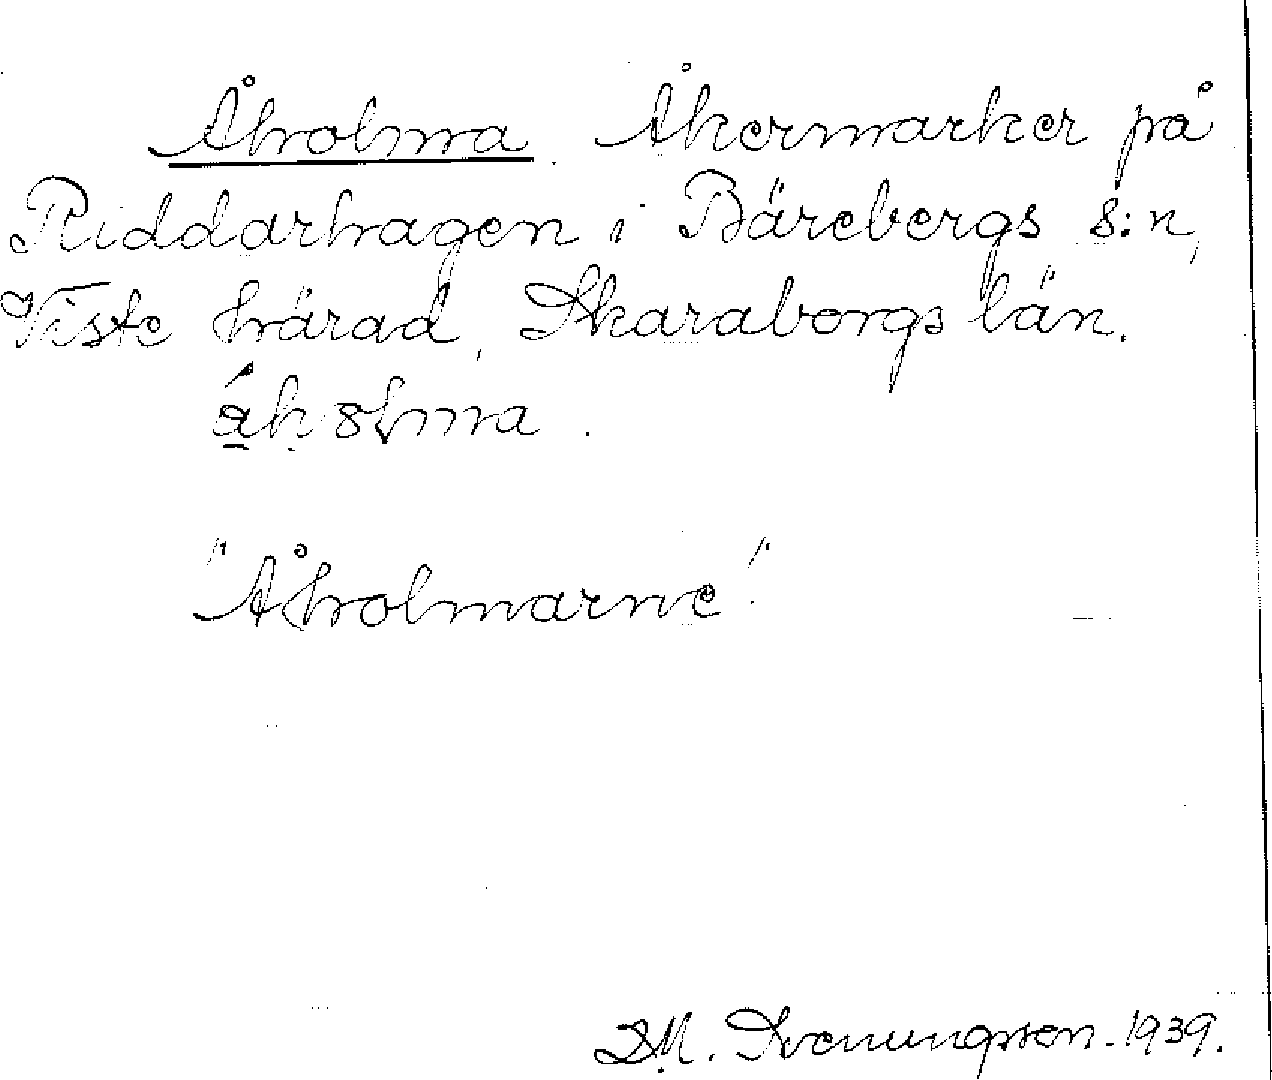 Åholma. Åkermarker på
Riddarhagen i Bärebergs s:n,
Viste härad, Skaraborgs län.
"Åholmarne".
D.M. Svenungsson. 1939.